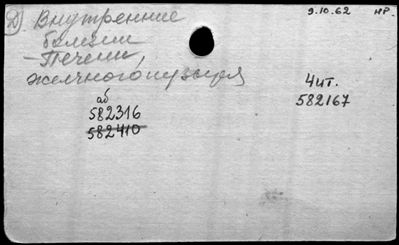 Д) Внутренние
9.10.62 нр.
болезни
– Печени,
желчного пузыря
аб
582316
582410
Чит.
582167